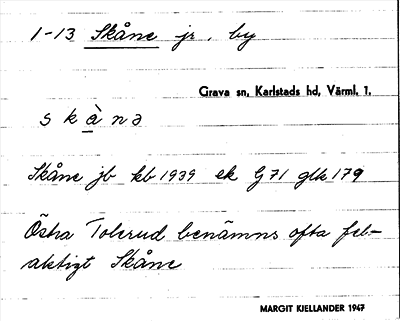 1-13 Skåne jr, by
Grava sn, Karlstads hd, Värml. l.
s k à n ə
Skåne jb kb 1939 ek G71 glk 179
Östra Tolerud benämns ofta fel-
aktigt Skåne
MARGIT KJELLANDER 1947